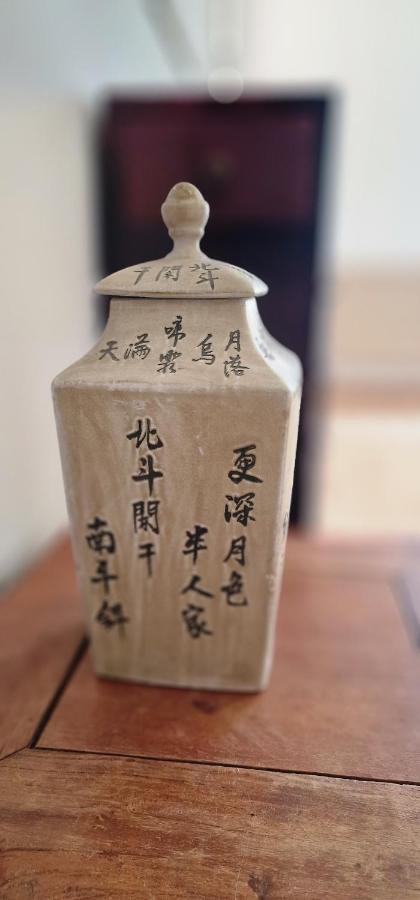 北斗闌干
月落
烏
啼霜
滿
天
更深月色
半人家
北斗闌干
南斗斜